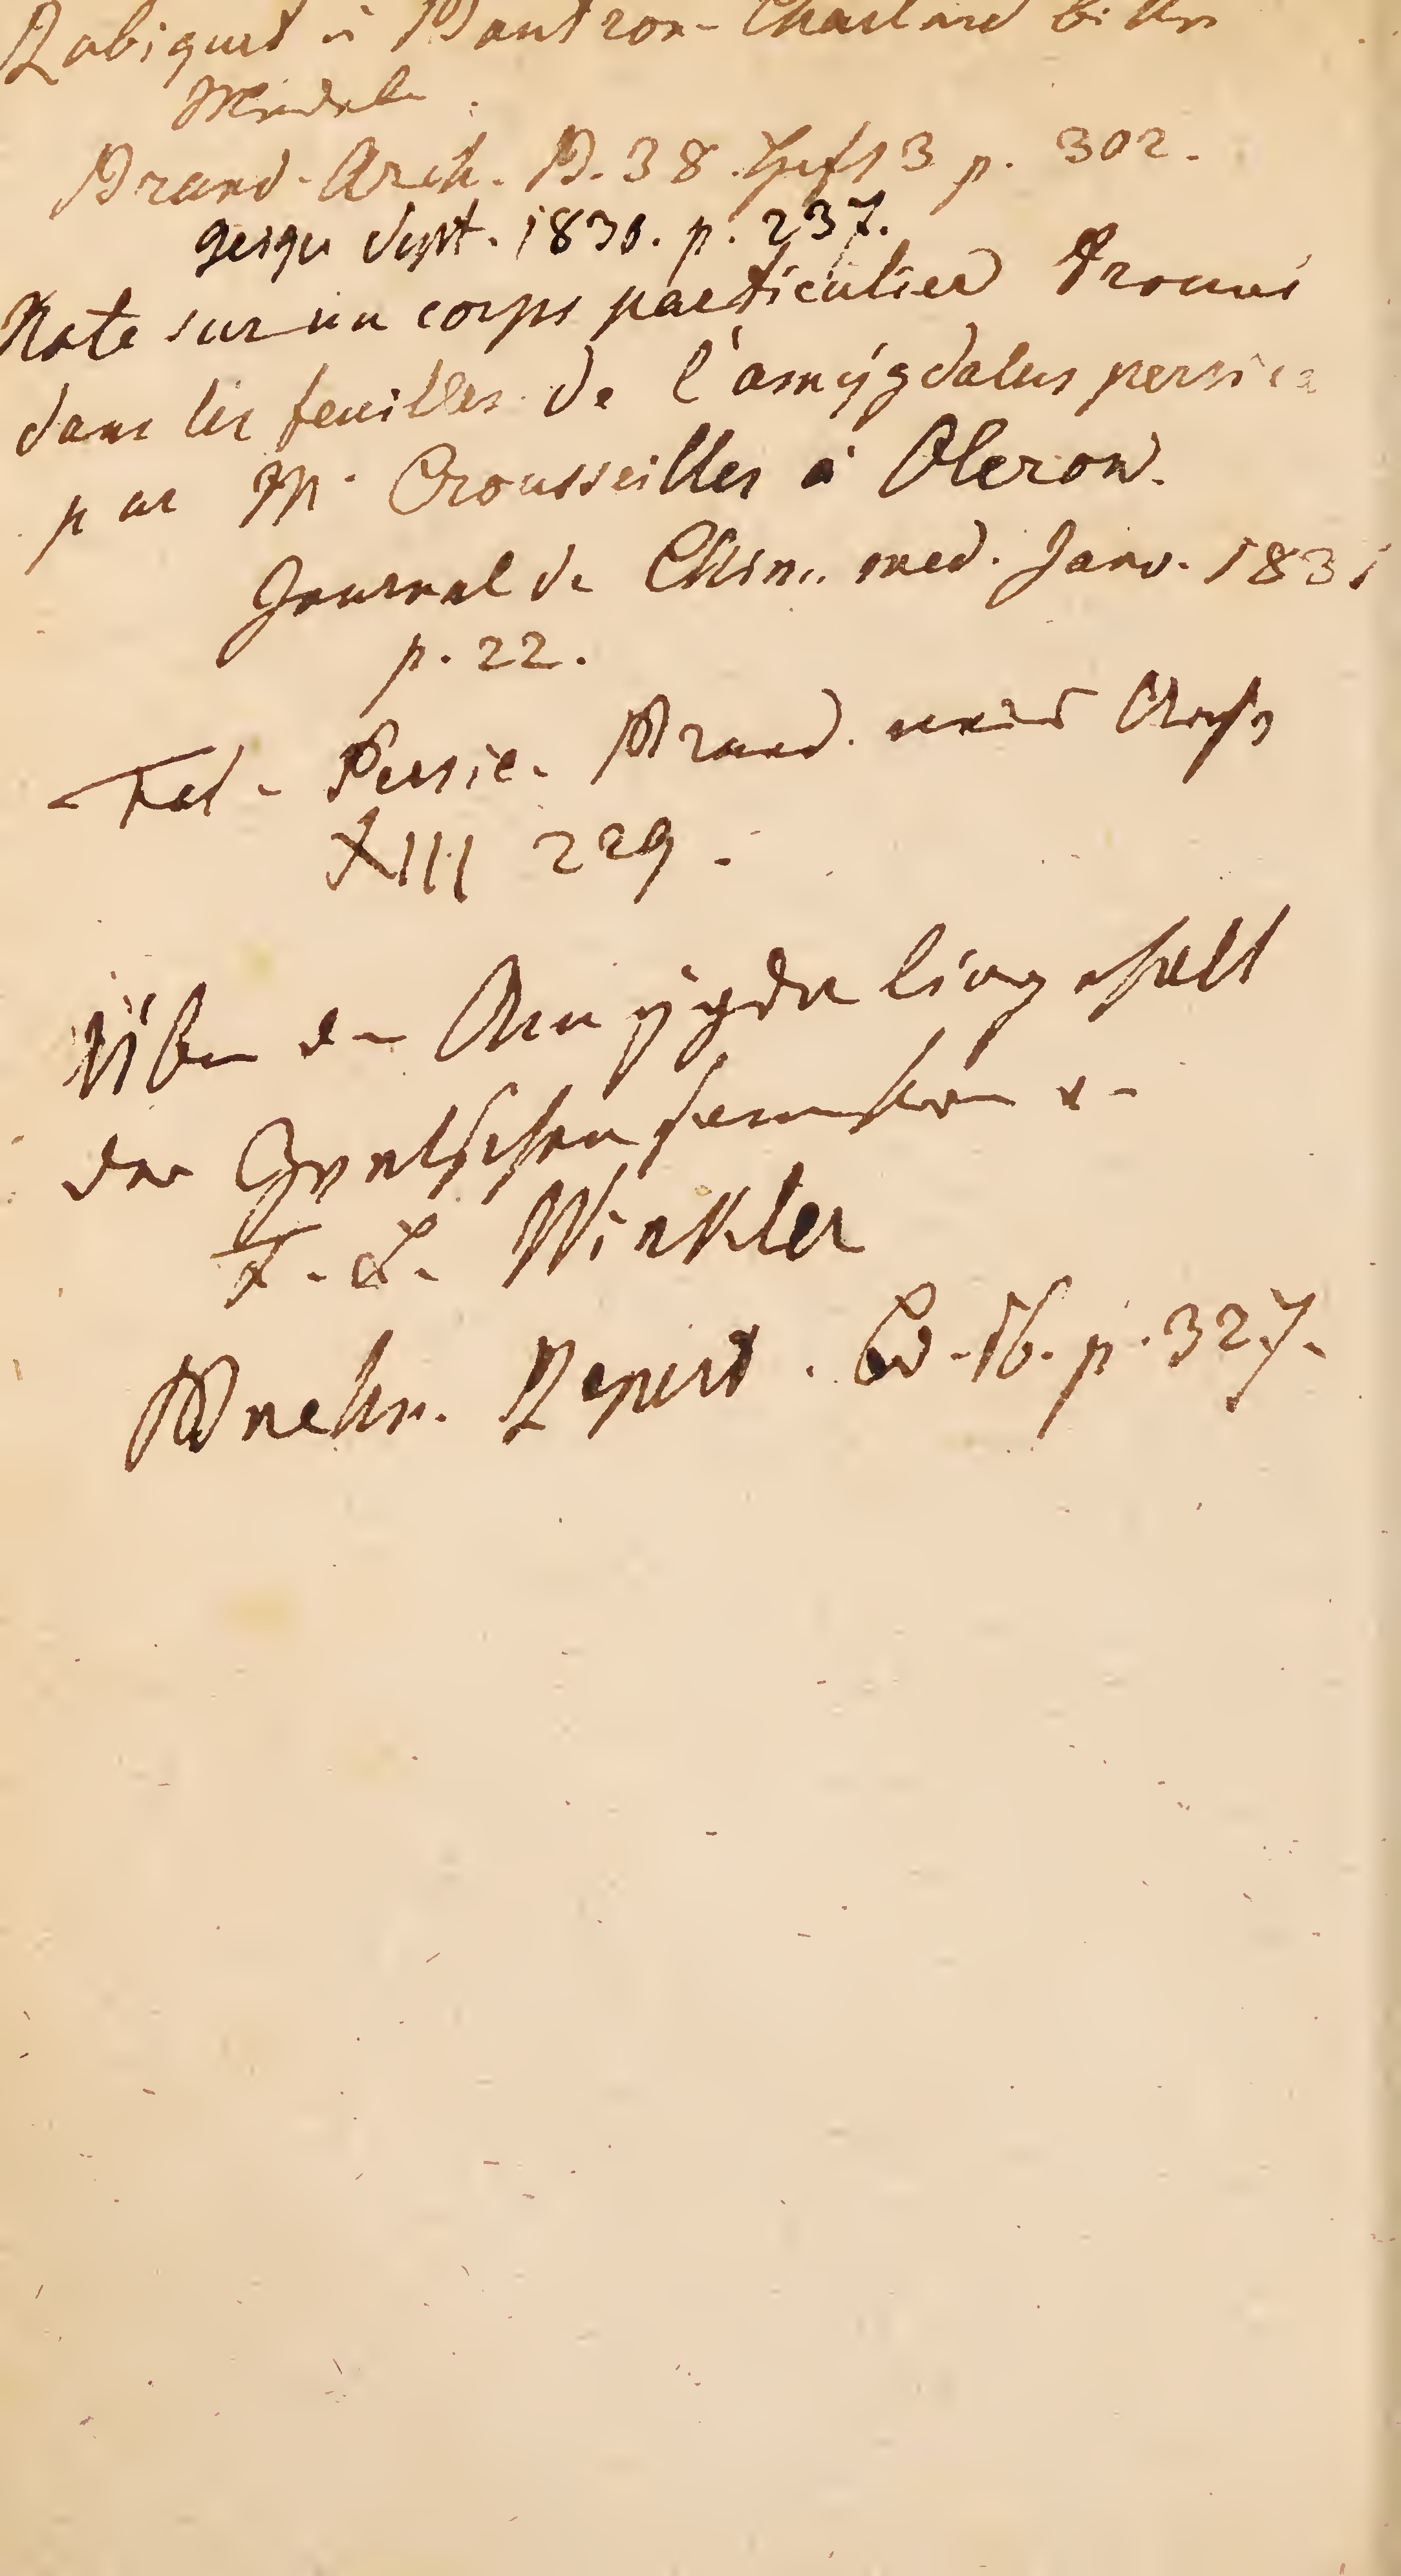 Robiquet u Boutron-Charlard bittre
Mandeln.
Brand. Arch. B. 38. Heft 3 p. 302.
Geiger Sept. 1831. p. 237.
Note sur un corps particulier trouvé
dans les feuilles de l'amygdalus persica
par Mr Crousseilles à Oleron.
Journal de Chim. med. Janv. 1831
p. 22.
Fol. Persic. Brand. Arch
XIII 229.
Über den Amygdalingehalt
der
F. L. Winkler
Buchn. Repert. Bd. 16. p. 327.